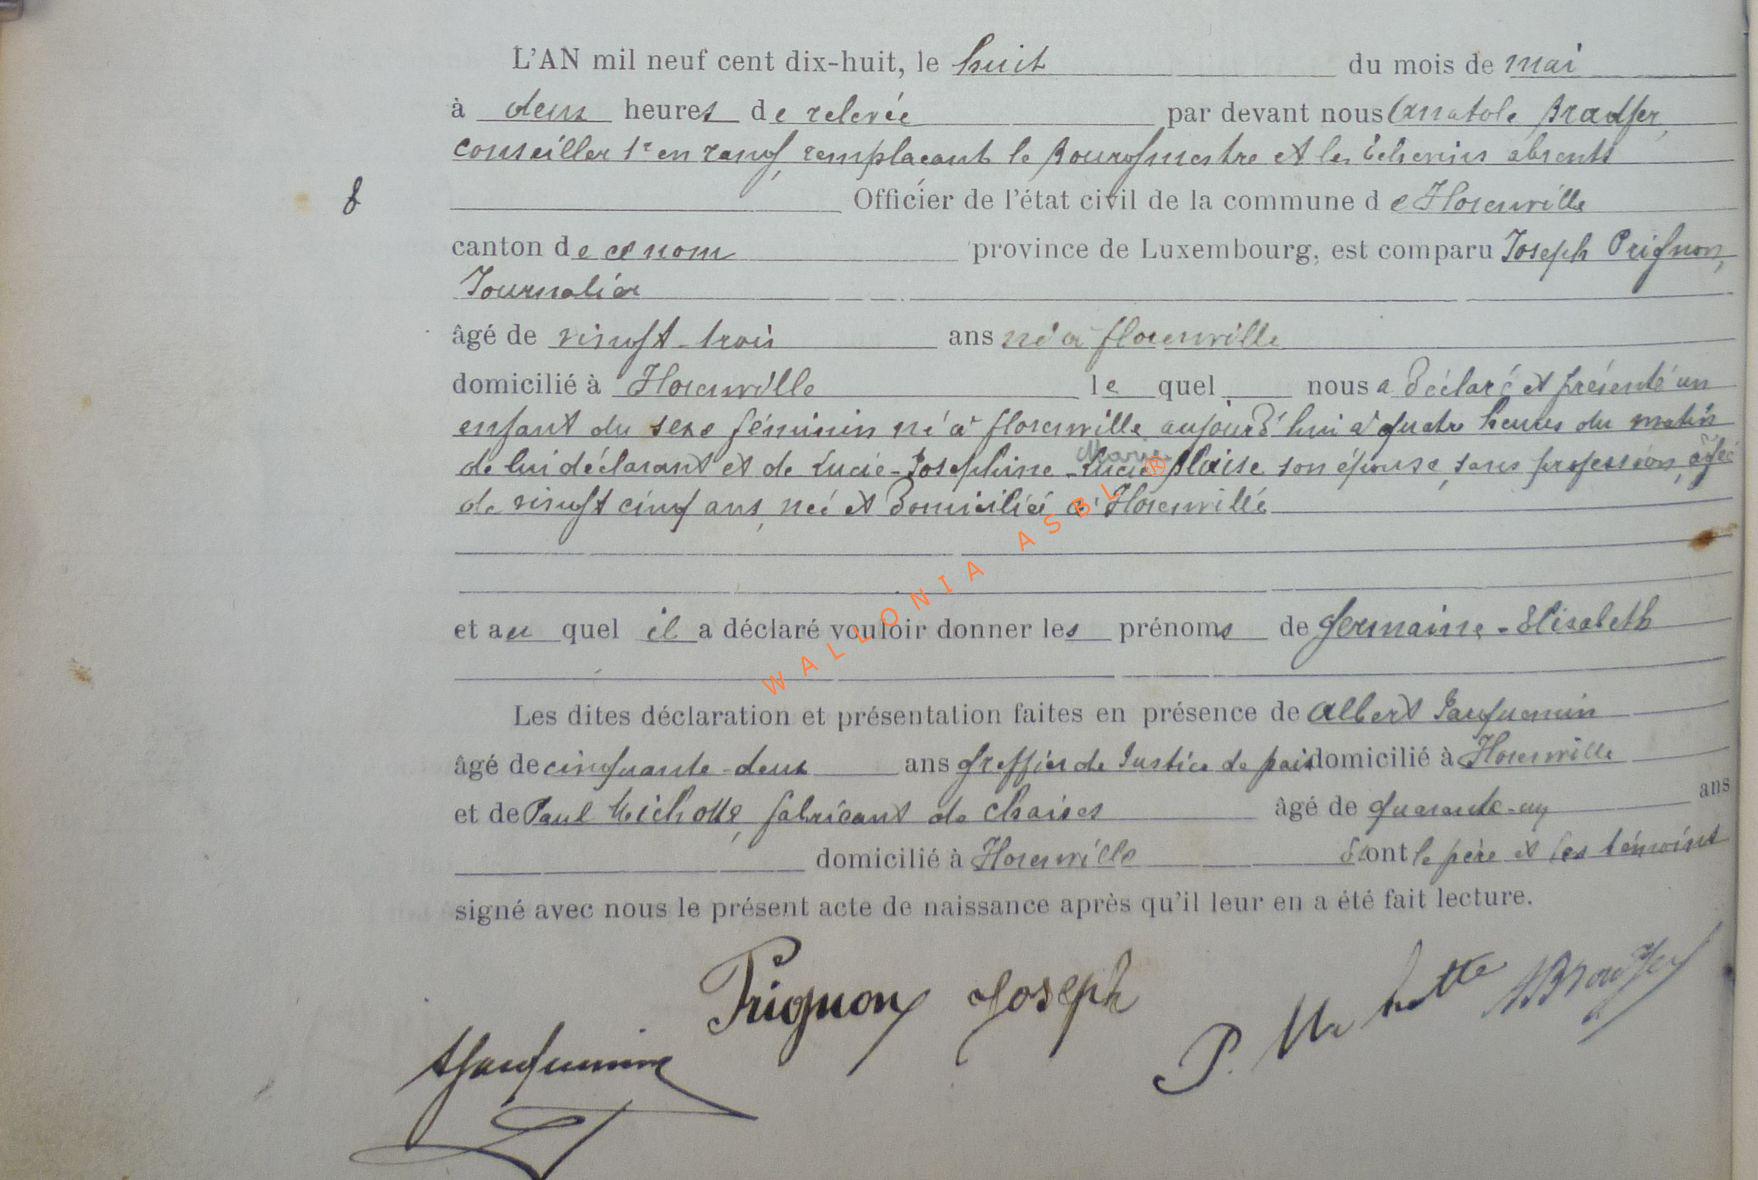 L'AN mil neuf cent dix-huit, le huit du mois de mai
à deux heures de relevée par devant nous Anatole
conseiller 1er en rang, remplaçant le Bourgmestre et les échevins absents
8 Officier de l'état civil de la commune de Florenville
canton de ce nom province de Luxembourg, est comparu Joseph Prignon,
Journalier
âgé de vingt-trois ans né à florenville
domicilié à Florenville lequel nous a déclaré et présenté un
enfant du sexe féminin né à florenville aujourd'hui à quatre heures du matin
Marie
de lui déclarant et de Lucie-Josephine-Lucie Blaise son épouse, sans profession, âgée
de vingt cinq ans, née et domiciliée à Florenville
WALLONIA ASBL ®
et auquel il a déclaré vouloir donner les prénoms de Germaine-Elisabeth
Les dites déclaration et présentation faites en présence de Albert Jacquemin
âgé de cinquante-deux ans Greffier de Justice de paix domicilié à Florenville
et de Paul Michotte, fabricant de chaises âgé de quarante-un ans
domicilié à Florenville Et ont le père et les témoins
signé avec nous le présent acte de naissance après qu'il leur en a été fait lecture.
Prignon Joseph
P. Michotte
AJacquemin